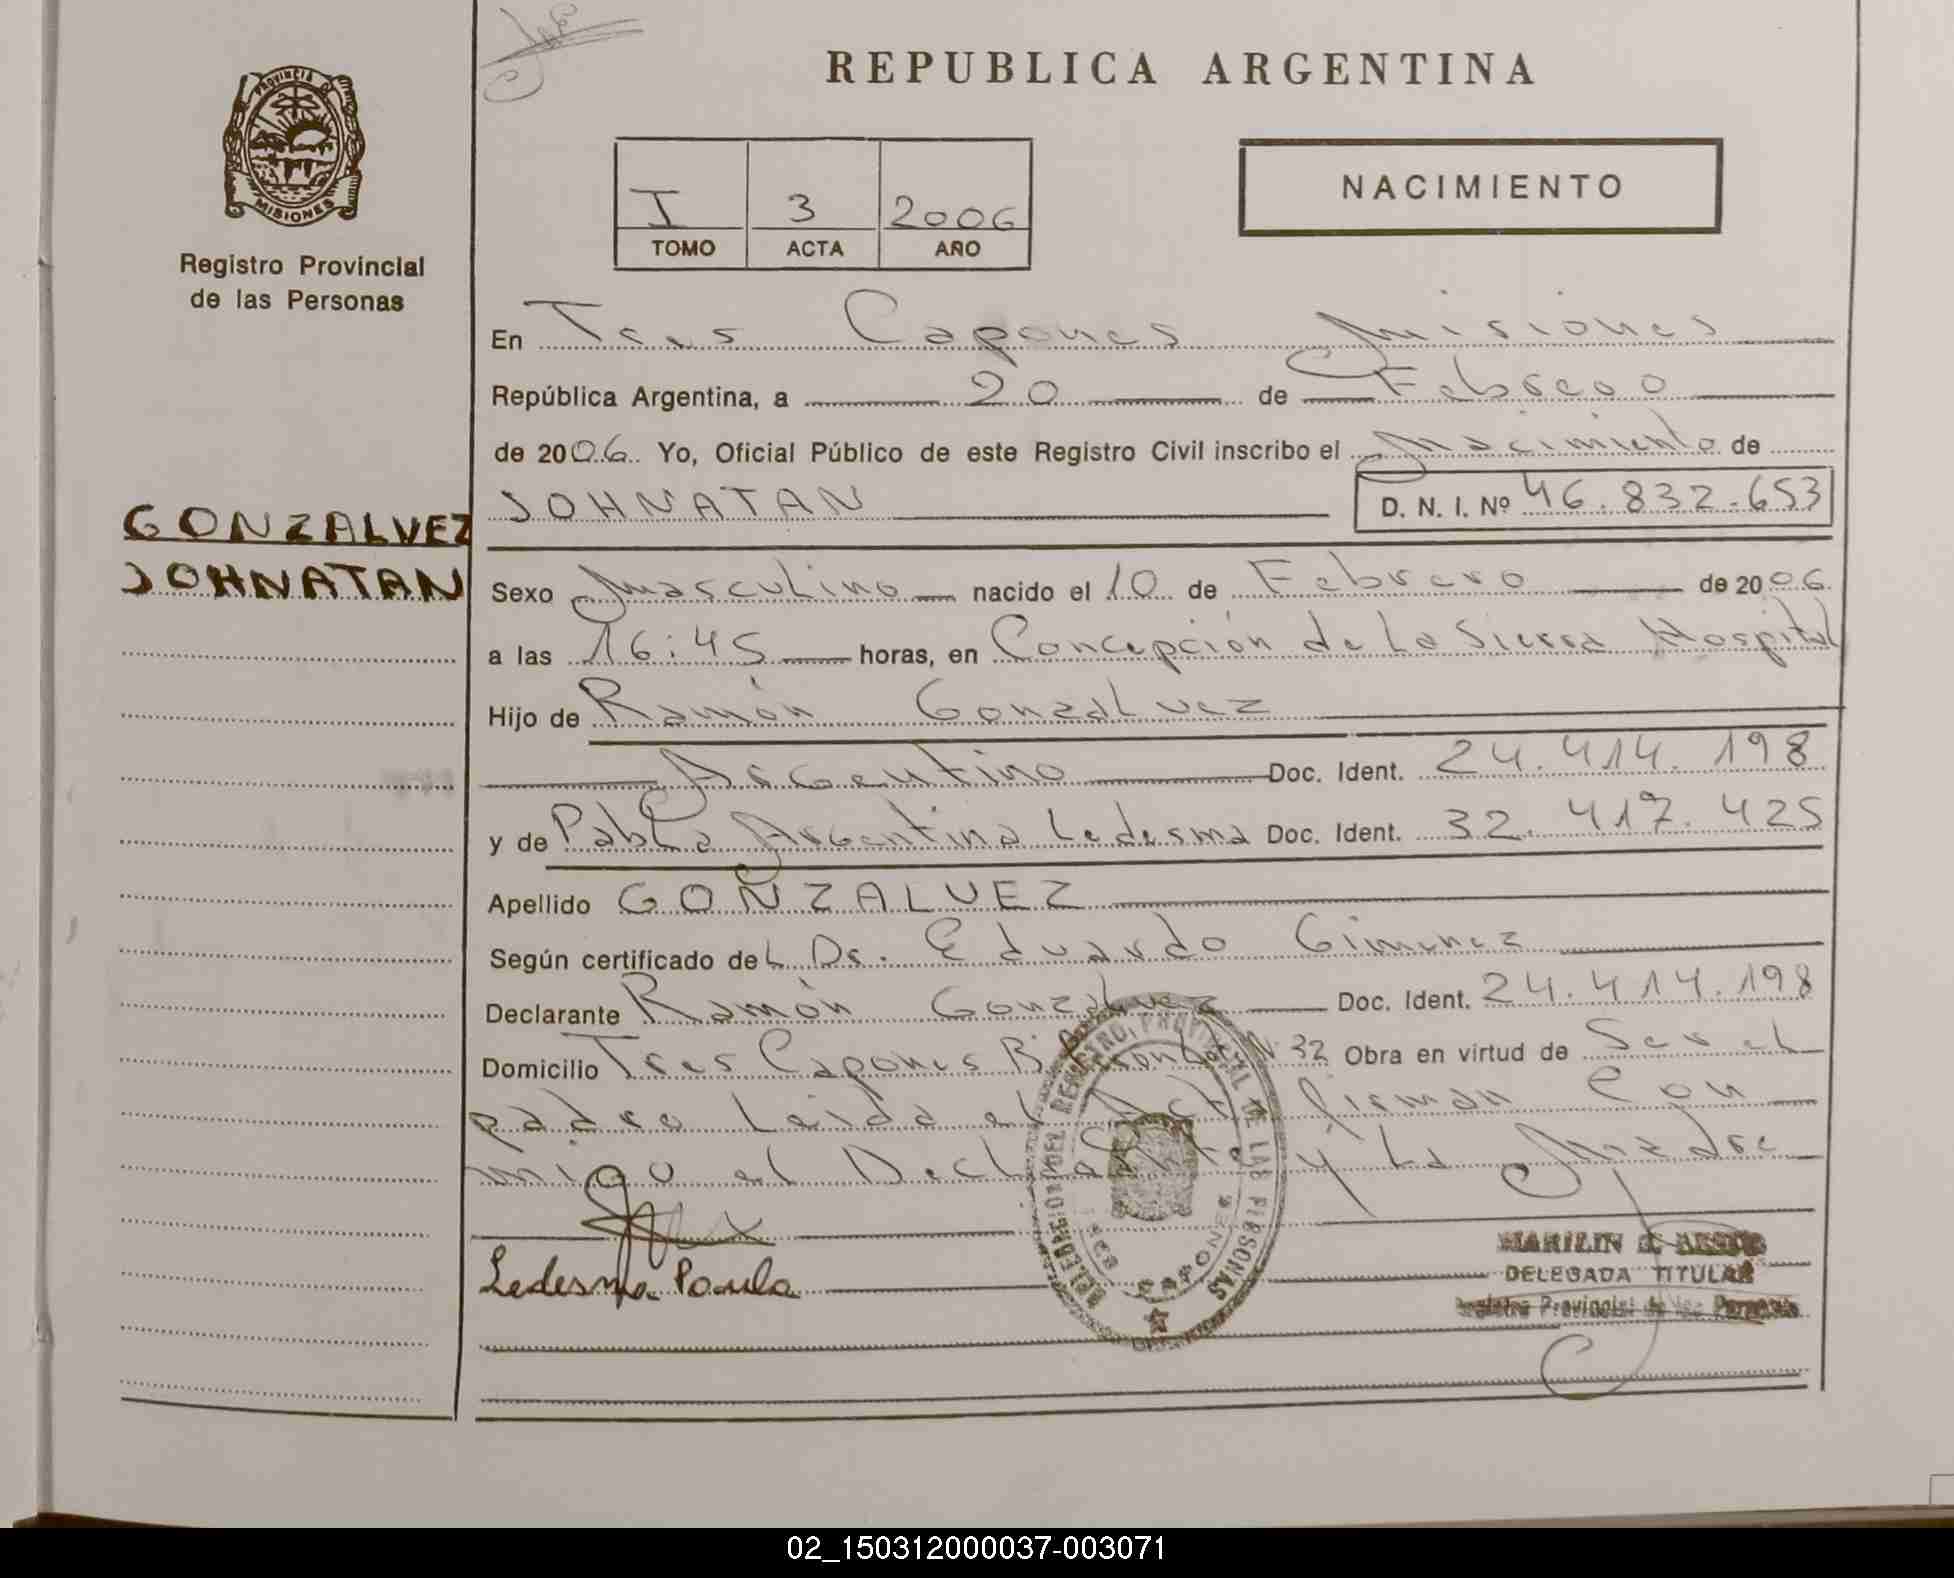 REPUBLICA ARGENTINA
PROVINCIA DE MISIONES
Registro Provincial
de las Personas
I 3 2006
TOMO ACTA AÑO
NACIMIENTO
En Tres Capones Misiones
República Argentina, a 20 de Febrero
de 2006. Yo, Oficial Público de este Registro Civil inscribo el Nacimiento de
JOHNATAN D. N. I. Nº 46.832.653
GONZALVEZ
JOHNATAN
Sexo Masculino nacido el 10 de Febrero de 2006.
a las 16:45 horas, en Concepción de La Sierra Hospital
Hijo de Ramón Gonzalvez
Argentino Doc. Ident. 24.414.198
y de Pabla Argentina Ledesma Doc. Ident. 32.417.425
Apellido GONZALVEZ
Según certificado del Dr. Eduardo Gimenez
Declarante Ramón Gonzalvez Doc. Ident. 24.414.198
Domicilio Tres Capones Bº N 32 Obra en virtud de Ser el
padre Leida el Acta firman Con
migo el Declarante y La Madre
Ledesma Paula
REGISTRO PROVINCIAL DE LAS PERSONAS
TRES CAPONES
MARILIN
DELEGADA TITULAR
Registro Provincial de las Personas
02_150312000037-003071